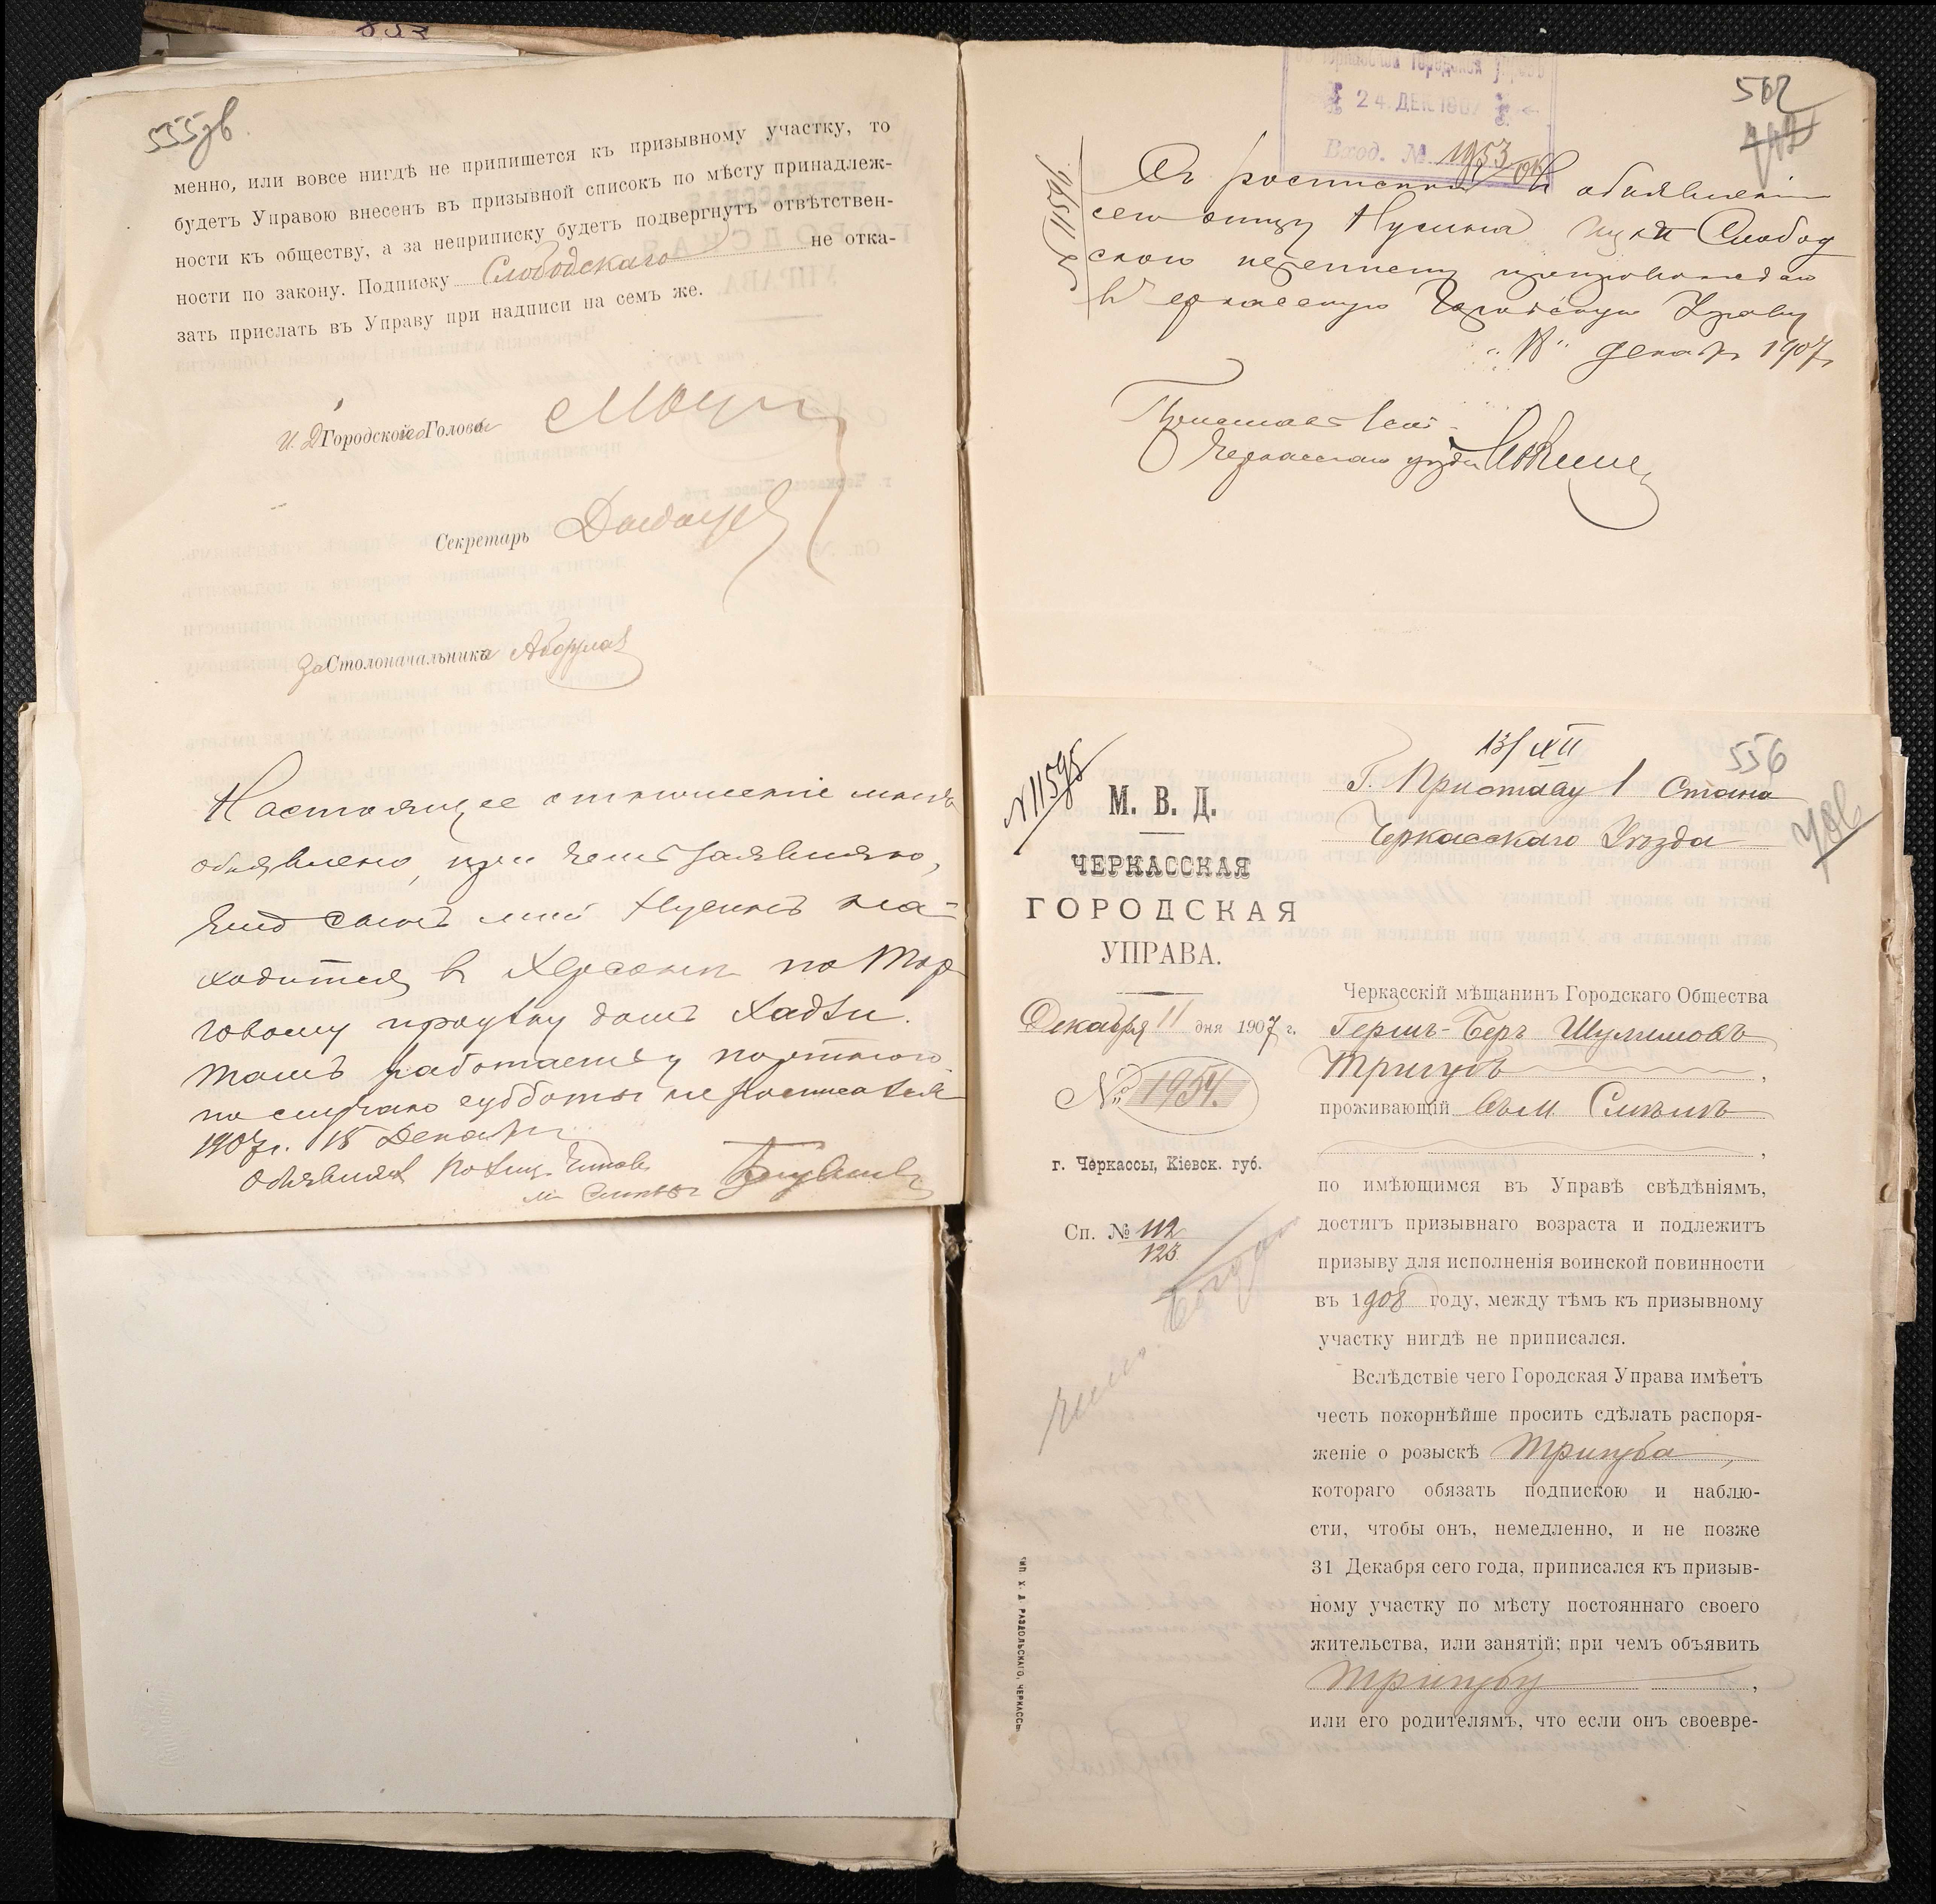 555 об
менно, или вовсе нигдѣ не припишется къ призывному участку, то
будетъ Управою внесенъ въ призывной списокъ по мѣсту принадлеж-
ности къ обществу, а за неприписку будетъ подвергнутъ отвѣтствен-
ности по закону. Подписку Слободскаго не отка-
зать прислать въ Управу при надписи на семъ же.
И. Д. Городского Головы
Секретарь
За Столоначальника
Настоящее отношеніе мнѣ
объявлено, при чемъ заявляю,
что сынъ мой Нусинъ на-
ходится в Херсонѣ по Тор
говому
тамъ работаетъ у портного
по случаю субботы не росписался
1907 г. 15 Декабря
Объявилъ Полиц.
м. Смѣлы
24 ДЕК. 1907
Вход. № 1953
502
Съ роспискою в объявленіи
сего отцу Нусина Слобод
ского препровождаю
в Черкасскую Городскую Управу
декабря 1907 г.
Приставъ 1 ст.
Черкасскаго уѣзда
№ 11595
13/XII
556
Г. Приставу 1 Стана
Черкасскаго Уѣзда
М. В. Д.
ЧЕРКАССКАЯ
ГОРОДСКАЯ
УПРАВА.
Декабря 11 дня 1907 г.
№ 1954.
г. Черкассы, Кіевск. губ.
Сп. № 112
123
Черкасскій мѣщанинъ Городскаго Общества
Гершъ-Беръ Шулимовъ
Тригубъ,
проживающій въ м. Смѣлѣ
,
по имѣющимся въ Управѣ свѣдѣніямъ,
достигъ призывнаго возраста и подлежитъ
призыву для исполненія воинской повинности
въ 1908 году, между тѣмъ къ призывному
участку нигдѣ не приписался.
Вслѣдствіе чего Городская Управа имѣетъ
честь покорнѣйше просить сдѣлать распоря-
женіе о розыскѣ Тригуба,
котораго обязать подпискою и наблю-
сти, чтобы онъ, немедленно, и не позже
31 Декабря сего года, приписался къ призыв-
ному участку по мѣсту постояннаго своего
жительства, или занятій; при чемъ объявить
Тригубу,
или его родителямъ, что если онъ своевре-
ТИП. Х. Д. РАЗДОЛЬСКАГО, ЧЕРКАССЫ.